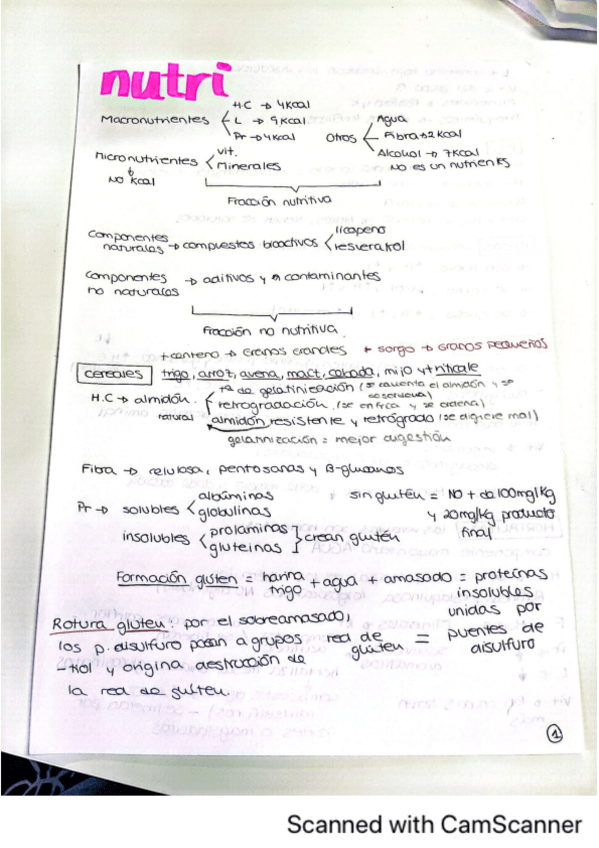 nutri
Macronutrientes HC → 4Kcal
L → 9Kcal
Pr → 4Kcal
Otros Agua
Fibra → 2Kcal
Alcohol → 7Kcal
No es un nutrientes
Micronutrientes vit.
Minerales
↓
No Kcal
Fracción nutritiva
Componentes naturales → compuestos bioactivos licopeno
resveratrol
Componentes no naturales → aditivos y contaminantes
Fracción no nutritiva
+ centeno → Granos grandes + sorgo → Granos pequeños
cereales trigo, arroz, avena, maíz, cebada, mijo y triticale
H.C → almidón. tª de gelatinización (se calienta el almidón y se desordena)
retrogradación (se enfría y se ordena)
natural almidón resistente y retrógrado (se digiere mal)
gelatinización = mejor digestión
Fibra → celulosa, pentosanas y β-glucanos
Pr → solubles albúminas
globulinas
insolubles prolaminas
gluteinas
] crean gluten
sin gluten = No + de 100mg/Kg
y 20mg/Kg producto
final
Formación gluten = harina trigo + agua + amasado = proteínas
insolubles
unidas por
puentes de
disulfuro
= red de gluten
Rotura gluten: por el sobreamasado,
los p. disulfuro pasan a grupos
-tiol y origina destrucción de
la red de gluten
1
Scanned with CamScanner